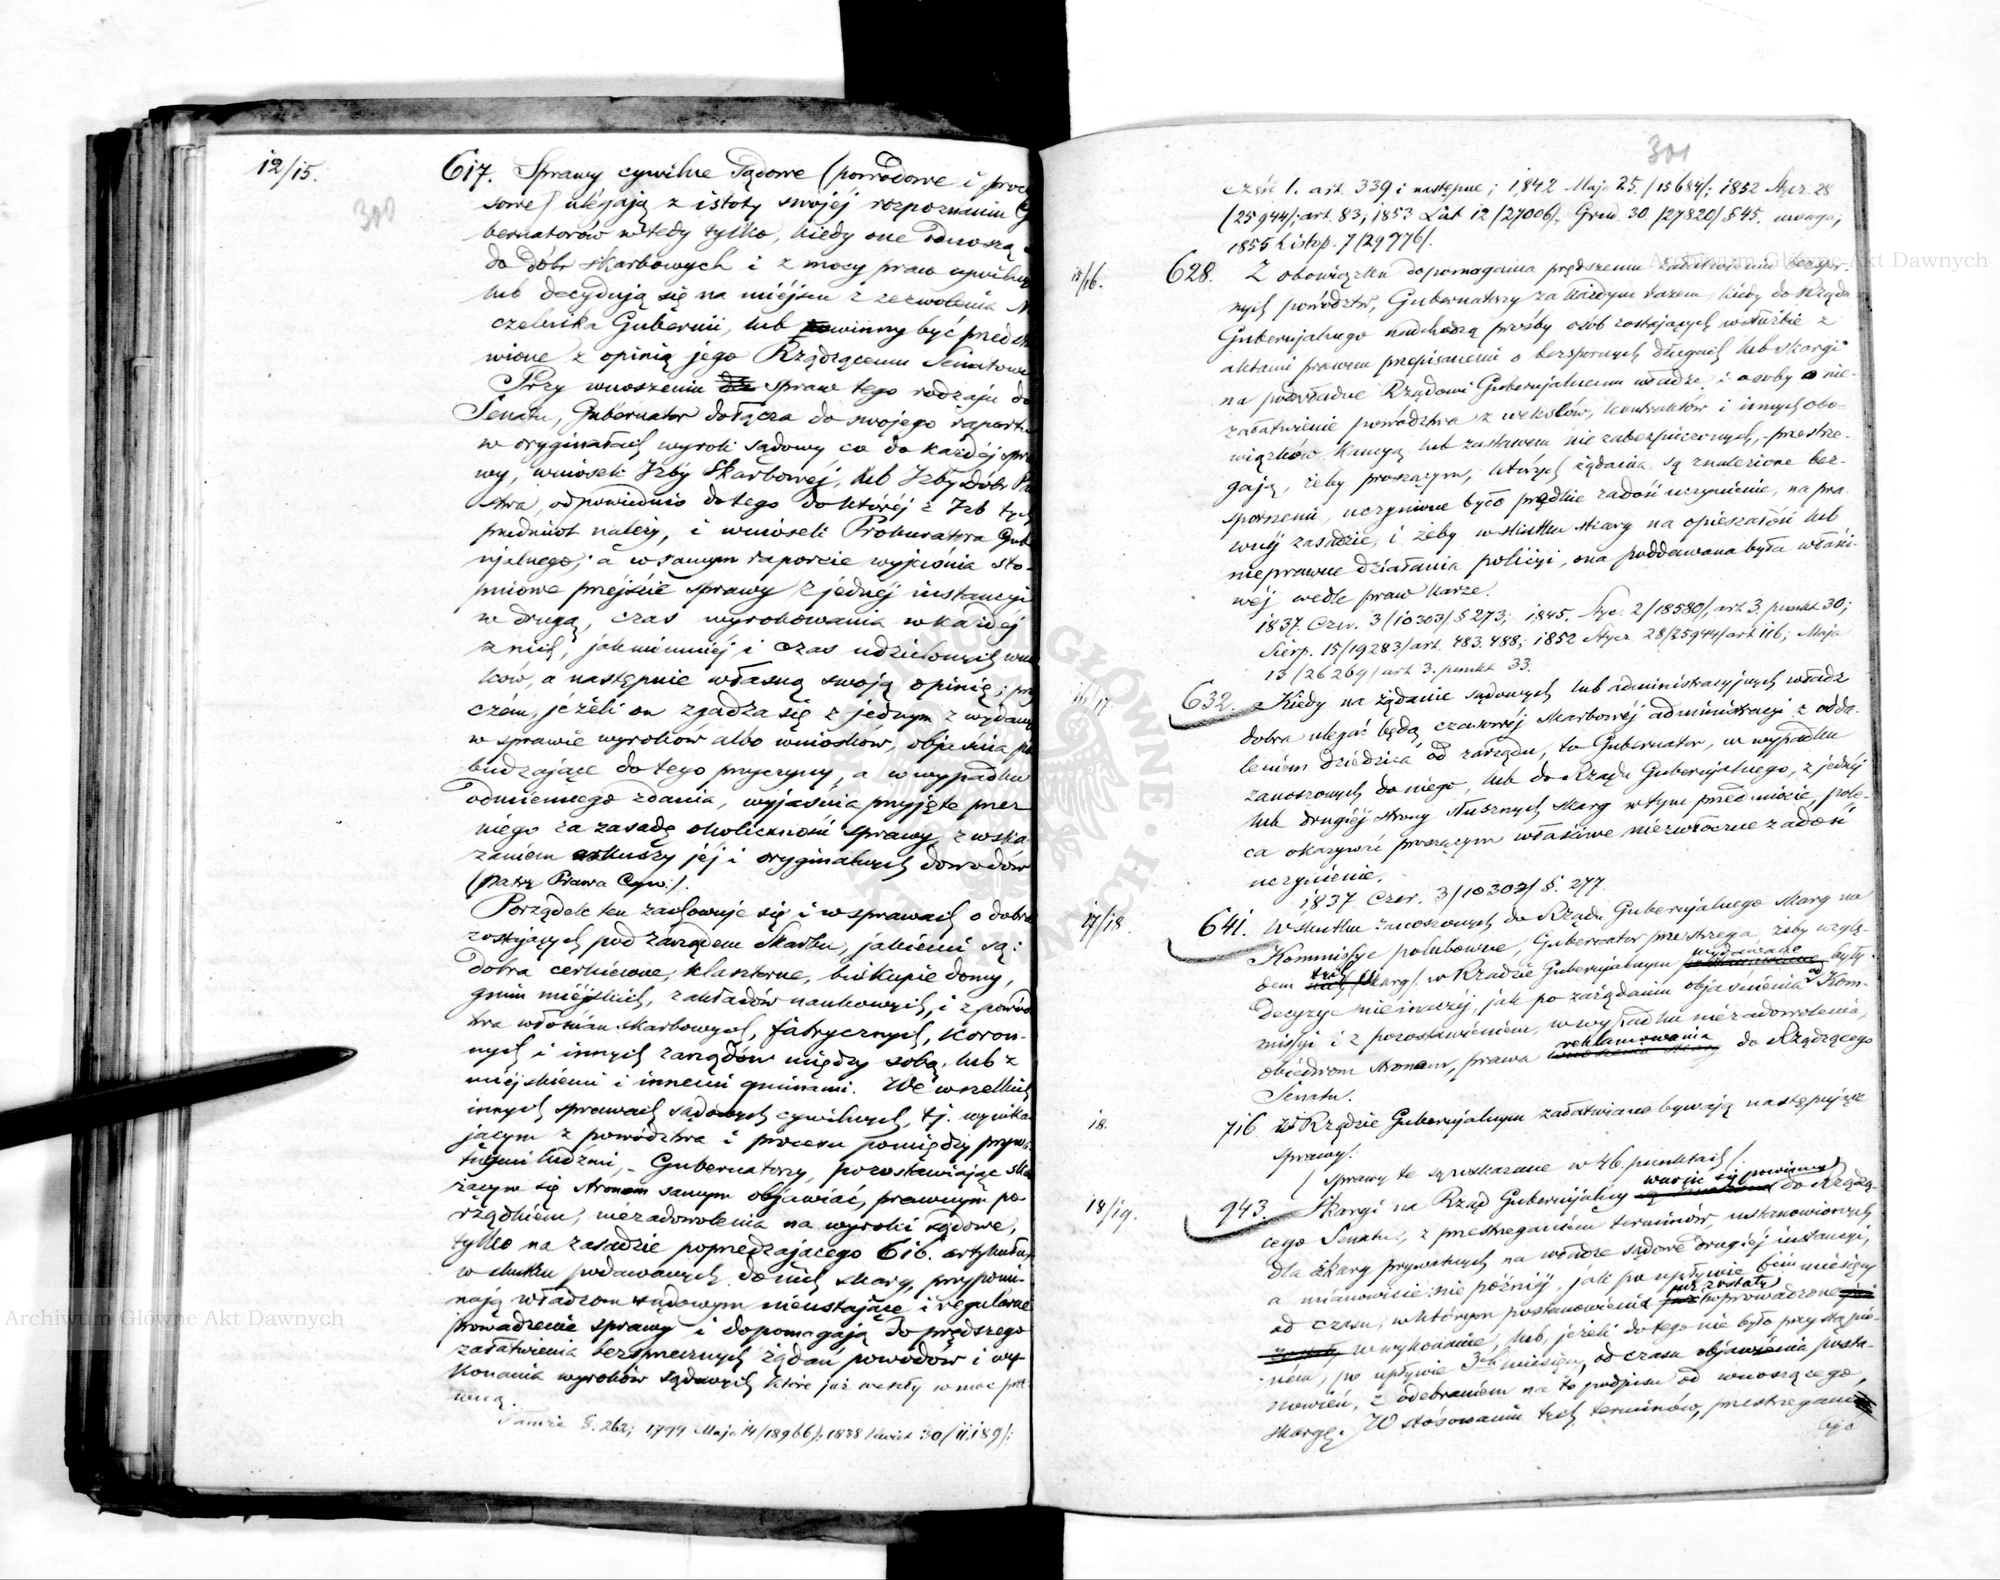 12/15.
300
617. Sprawy cywilne Sądowe (powodowe i proce
sowe) ulegają z istoty swojéj rozpoznaniu Gu
bernatorów wtedy tylko, kiedy one odnoszą
do dóbr skarbowych i z mocy praw cywilny
lub decydują się na miéjscu z zezwolenia N
czelnika Gubernii, lub powinny być przedsta
wione z opinią jego Rządzącemu Senatowi
Przy wnoszeniu spraw tego rodzaju do
Senatu, Gubernator dołącza do swojego raportu
w oryginałach wyrok sądowy co do każdéj spra
wy, wniosek Izby Skarbowéj, lub Izby Dóbr Pań
stwa, odpowiednio do tego do któréj z Izb tych
przedmiot należy, i wniosek Prokuratora Gube
njalnego; a w samym raporcie wyjaśnia sto-
pniowe przejście sprawy z jednéj instancyi
w drugą, czas wyrokowania w każdéj
z nich, jakniemniéj i czas udzielonych wnio
sków, a następnie własną swoją opinię; przy
czém, jeżeli on zgadza się z jednym z wydany
w sprawie wyroków albo wniosków, objaśnia po
budzające do tego przyczyny, a w wypadku
odmiennego zdania, wyjaśnia przyjęte przez
niego za zasadę okoliczności sprawy, z wska
zaniem arkuszy jéj i oryginalnych dowodów
(patrz Prawa Cyw:).
Porządek ten zachowuje się i w sprawach o dobra
zostających pod zarządem Skarbu, jakiemi są:
dobra cerkiewne, klasztorne, biskupie domy,
gmin miéjskich, zakładów naukowych, i z powódz
twa włościan skarbowych, fabrycznych, koron-
nych i innych zarządów między sobą, lub z
miéjskiemi i innemi gminami. We wszelkich
innych sprawach sądowych cywilnych, tj. wynika
jącym z powództwa i procesu pomiędzy prywa
tnymi ludźmi, – Gubernatorzy, pozostawiając skar
żącym się stronom samym objawiać, prawnym po
rządkiem, niezadowolenia na wyroki sądowe,
tylko na zasadzie poprzedzającego 616. artykułu,
w skutku podawanych do nich skarg, przypomi-
nają władzom sądowym nieustające i regularne
prowadzenie sprawy i dopomagają do prędszego
załatwienia bezsprzecznych żądań powodów i wy-
konania wyroków sądowych które już weszły w moc pra-
wną.
Tamże §. 262; 1799 Maja 14/18966/; 1838 Kwiet 30/11,189/;
301
część 1. art. 339 i następne; 1842 Maja 25. /15684/; 1852 Stycz. 28
(25944/; art. 83; 1853 Lut 12 /27006/. Grud. 30 /27820/ §45. uwaga;
1855 Listop. 7 /29776/.
15/16.
628. Z obowiązku dopomagania prędszemu załatwieniu bezspor-
nych powództw, Gubernatorzy za każdym razem, kiedy do Rządu
Gubernjalnego nadchodzą prośby osób zostających w służbie z
aktami prawem przepisanemi o bezspornych długach lub skargi
na podwładne Rządowi Gubernjalnemu władze i osoby o nie-
załatwienie powództwa z wekslów, kontraktów i innych obo-
wiązków kaucyą lub zastawem nie zabezpieczonych, – przestrze-
gają, żeby proszącym, których żądania są znalezione bez-
spornemi, uczynione było prędkie zadość uczynienie, na pra-
wnéj zasadzie, i żeby w skutku skarg na opieszałość lub
nieprawne działania policyi, ona poddawana była właści-
wéj wedle praw karze.
1837. Czer. 3 /10303/ § 273; 1845. Styc. 2 /18580/, art 3. punkt 30;
Sierp. 15 /19283/ art. 483. 488; 1852 Stycz 28/25944/ art 116; Maja
13 /26269/ art 3. punkt 33.
16/17.
632. Kiedy na żądanie sądowych lub administracyjnych władz
dobra ulegać będą czasowéj skarbowéj administracyi z odda-
leniem dziedzica od zarządu, to Gubernator, w wypadku
zanoszonych do niego, lub do Rządu Gubernjalnego, z jednéj
lub drugiéj strony słusznych skarg w tym przedmiocie, pole-
ca okazywać proszącym właściwe niezwłoczne zadość
uczynienie.
1837 Czer. 3 /10303/ §. 277.
17/18.
641. W skutku zanoszonych do Rządu Gubernjalnego skarg na
Kommissye polubowne, Gubernator przestrzega, żeby wzglę-
dem tych skarg w Rządzie Gubernjalnym wydawane były
decyzye nie inaczéj, jak po zażądaniu objaśnienia od Kom-
missyi i z pozostawieniem, w wypadku niezadowolenia,
obiedwom stronom, prawa reklamowania do Rządzącego
Senatu.
18.
716 W Rządzie Gubernjalnym załatwiane bywają następujące
sprawy.
(Sprawy te są wskazane w 46. punktach).
18/19.
943. Skargi na Rząd Gubernijalny wnosić się powinny do Rządzą-
cego Senatu, z przestrzeganiem terminów, ustanowionych
dla skarg prywatnych na władze sądowe drugiéj instancyi,
a mianowicie: nie późniéj, jak po upływie 6ciu miesięcy
od czasu, w którym postanowienia już zostały wprowadzone
w wykonanie, lub, jeżeli do tego nie było przystąpie-
niem, po upływie 3ch miesięcy, od czasu objawienia posta-
nowień, z odebraniem na to podpisu od wnoszącego,
skargę. W stósowaniu tych terminów, przestrzegane
być